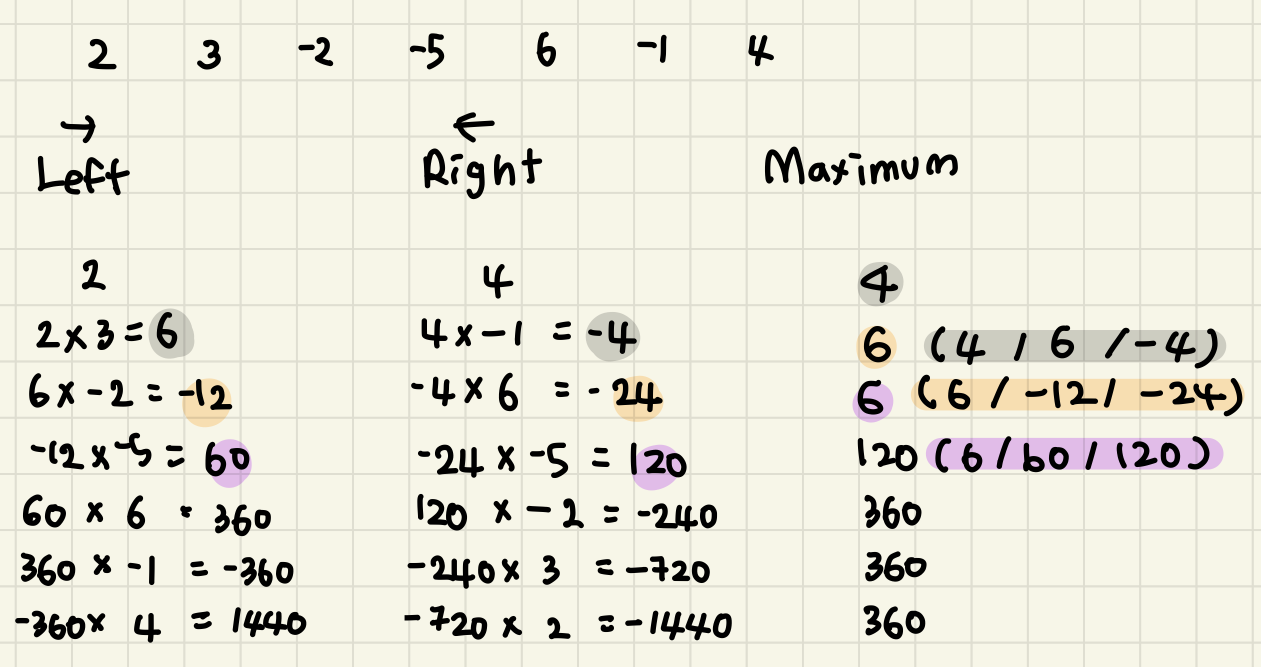 2 3 -2 -5 6 -1 4
→ ←
Left Right Maximum
2 4 4
2 x 3 = 6 4 x -1 = -4 6 (4 / 6 / -4)
6 x -2 = -12 -4 x 6 = -24 6 (6 / -12 / -24)
-12 x -5 = 60 -24 x -5 = 120 120 (6 / 60 / 120)
60 x 6 = 360 120 x -2 = -240 360
360 x -1 = -360 -240 x 3 = -720 360
-360 x 4 = 1440 -720 x 2 = -1440 360